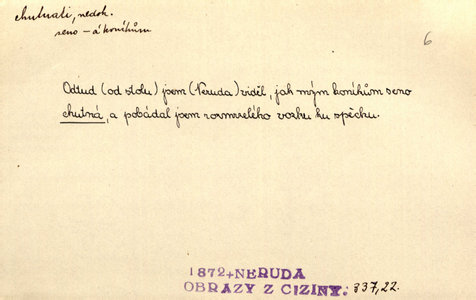 chutnati, nedok.
seno - á koníkům
6
Odtud (od stolu) jsem (Neruda) viděl, jak mým koníkům seno
chutná, a pobádal jsem rozmrzelého vozku ku spěchu.
1872+NERUDA
OBRAZY Z CIZINY. 337,22.